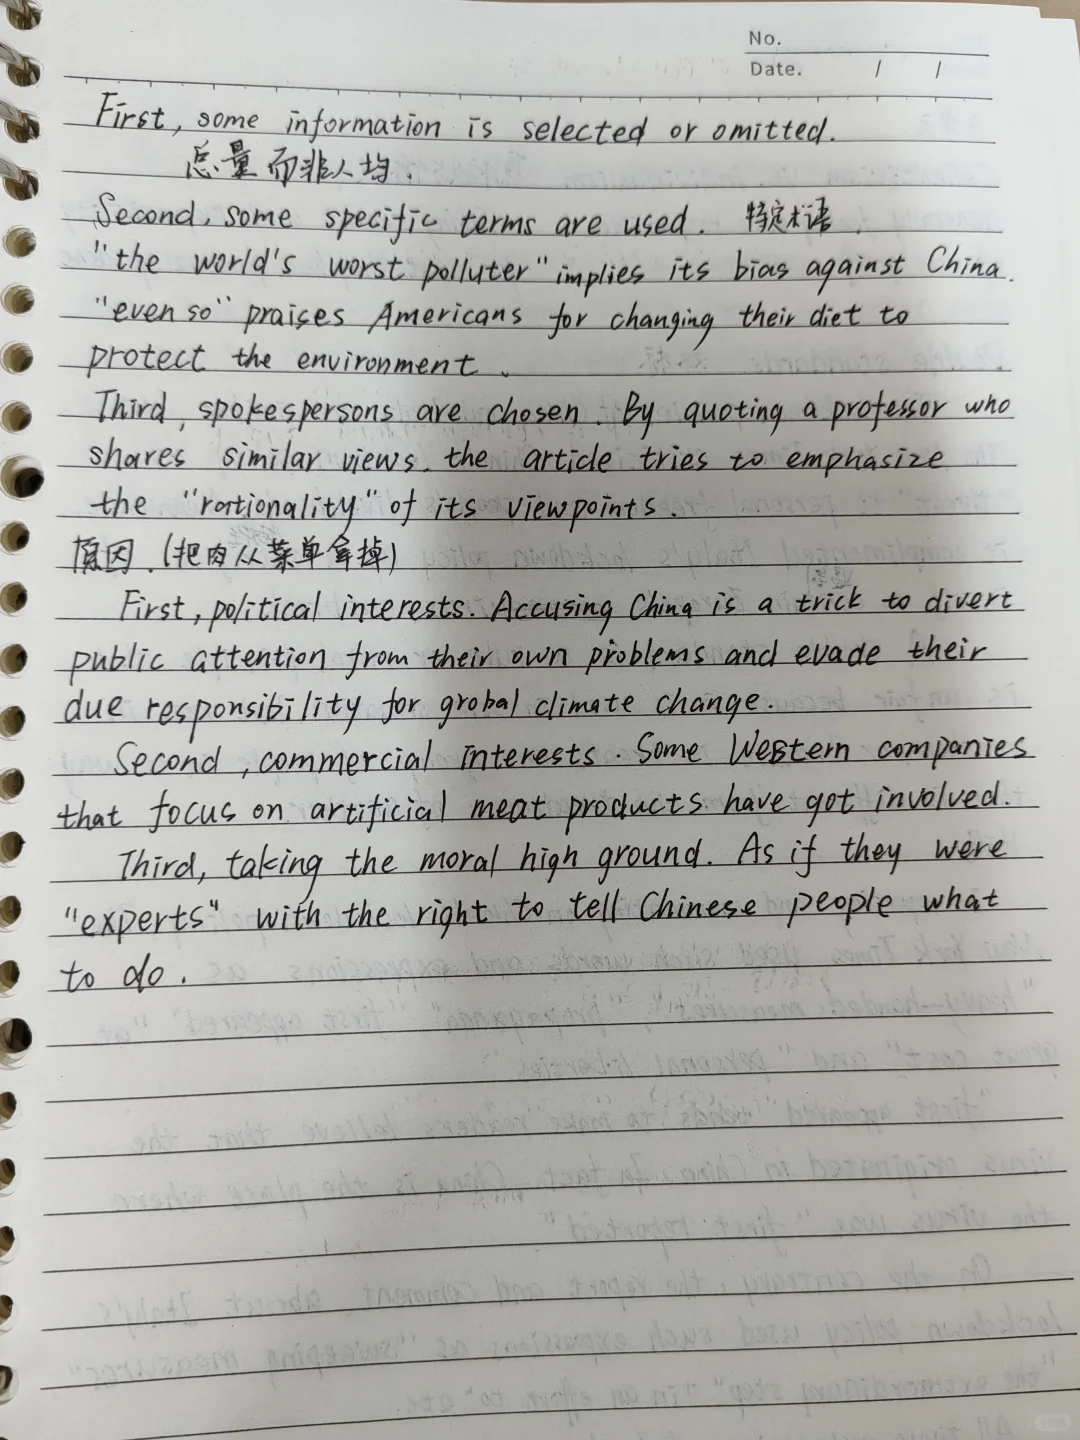 No.
Date. / /
First, some information is selected or omitted.
总量而非人均.
Second, some specific terms are used. 特定术语.
"the world's worst polluter" implies its bias against China.
"even so" praises Americans for changing their diet to
protect the environment.
Third, spokespersons are chosen. By quoting a professor who
shares similar views, the article tries to emphasize
the "rationality" of its viewpoints.
原因.(把肉从菜单拿掉)
First, political interests. Accusing China is a trick to divert
public attention from their own problems and evade their
due responsibility for grobal climate change.
Second, commercial interests. Some Western companies
that focus on artificial meat products have got involved.
Third, taking the moral high ground. As if they were
"experts" with the right to tell Chinese people what
to do.